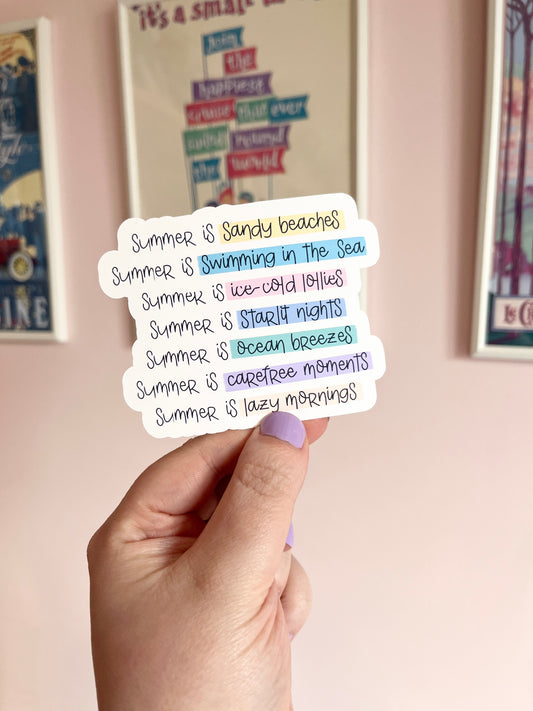 it's a small
Join
the
happiest
cruise that ever
sailed around
the world
summer is sandy beaches
summer is swimming in the sea
summer is ice-cold lollies
summer is starlit nights
summer is ocean breezes
summer is carefree moments
summer is lazy mornings